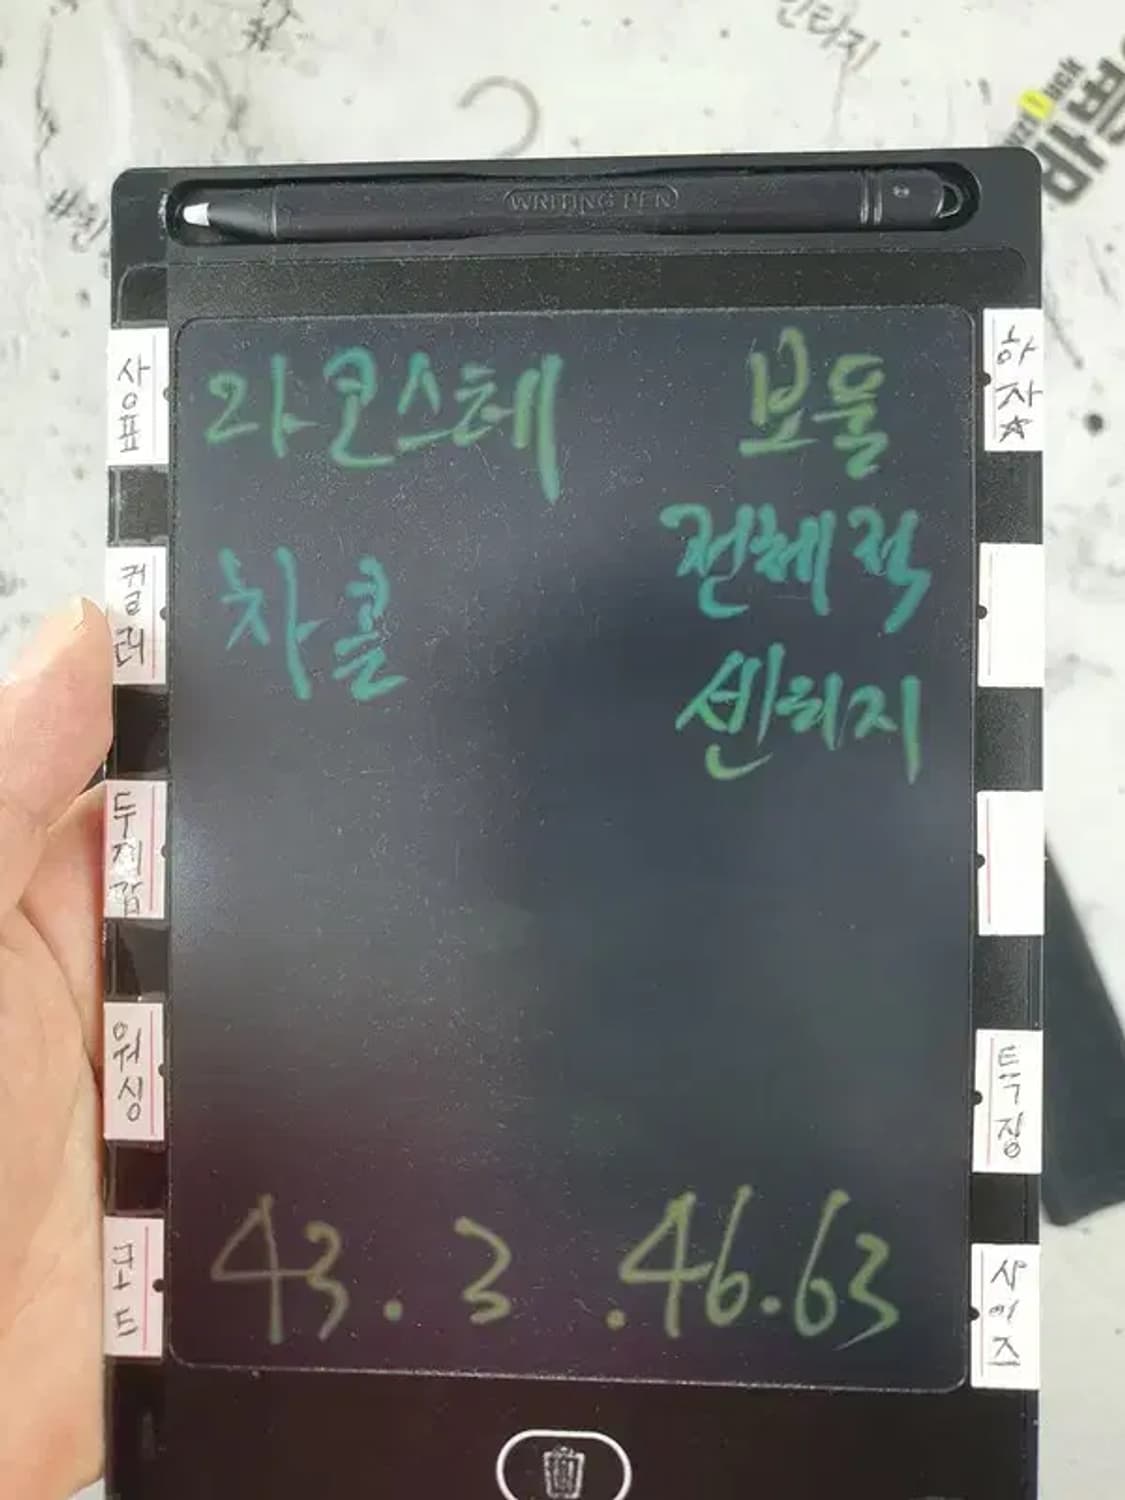 빈티지
WRITING PEN
사용표
라코스테
보풀
하자☆
전체적
컬러
차콜
빈티지
두께감
워싱
특징
코드
43 . 3 . 46 . 63
사이즈